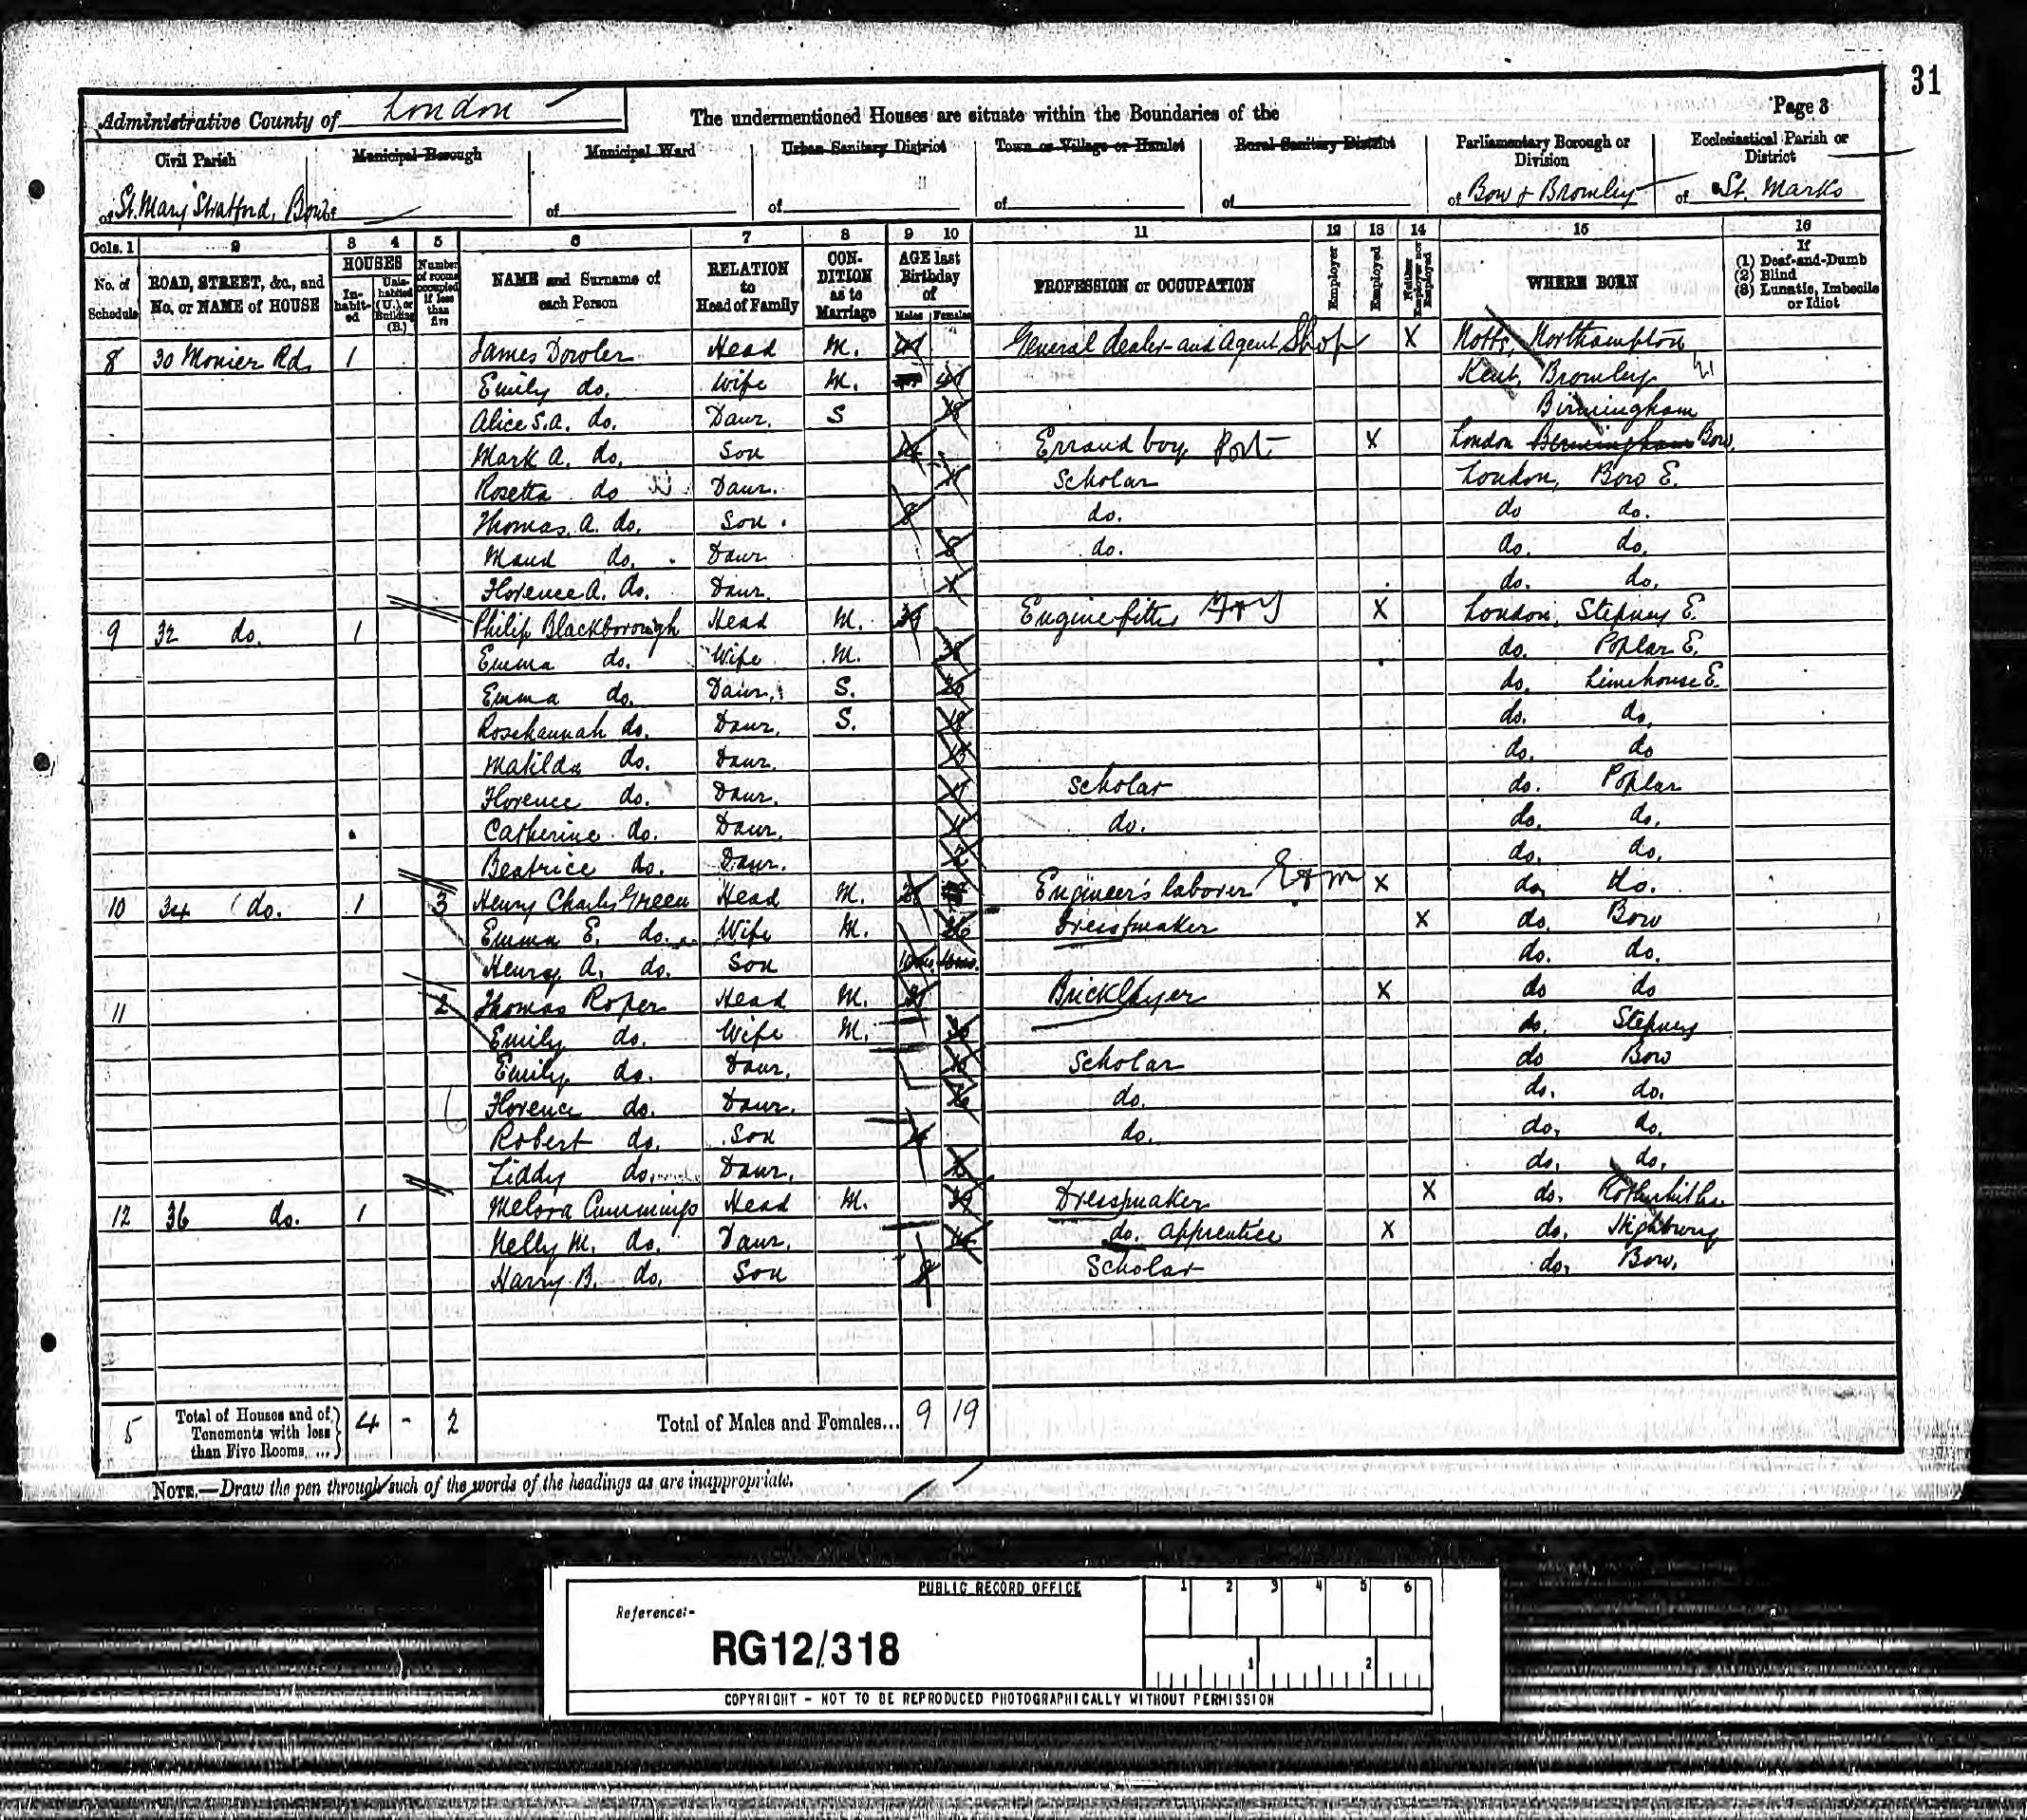 31
Administrative County of London
The undermentioned Houses are situate within the Boundaries of the
Page 3
Civil Parish
Municipal Borough
Municipal Ward
Urban Sanitary District
Town or Village or Hamlet
Rural Sanitary District
Parliamentary Borough or Division
Ecclesiastical Parish or District
of St. Mary Stratford, Bow of of of of of of Bow & Bromley of St. Marks
Cols. 1 2 3 4 5 6 7 8 9 10 11 12 13 14 15 16
No. of Schedule
ROAD, STREET, &c., and No. or NAME of HOUSE
HOUSES
Inhabited
Uninhabited (U.), or Building (B.)
Number of rooms occupied if less than five
NAME and Surname of each Person
RELATION to Head of Family
CONDITION as to Marriage
AGE last Birthday of
Males Females
PROFESSION or OCCUPATION
Employer
Employed
Neither Employer nor Employed
WHERE BORN
If
(1) Deaf-and-Dumb
(2) Blind
(3) Lunatic, Imbecile or Idiot
8 30 Monier Rd. 1 James Dowler Head M. General dealer and Agent Shop X Notts, Northampton
Emily do. Wife M. Kent, Bromley
Alice S.A. do. Daur. S Birmingham
Mark A. do. Son Errand boy Port X London Birmingham Bow.
Rosetta do Daur. Scholar London, Bow E.
Thomas. A. do. Son. 8 do. do do.
Maud do. Daur do. do. do.
Florence A. do. Daur. do. do.
9 32 do. 1 Philip Blackborough Head M. 39 Engine fitter X London, Stepney E.
Emma do. Wife M. 38 do. Poplar E.
Emma do. Daur. S. 20 do. Limehouse E.
Rosehannah do. Daur. S. 18 do. do.
Matilda do. Daur. do. do
Florence do. Daur. Scholar do. Poplar
Catherine do. Daur. do. do. do.
Beatrice do. Daur. 2 do. do.
10 34 do. 1 3 Henry Charles Green Head M. Engineer's laborer E & M X do. do.
Emma E. do. Wife M. 26 Dressmaker X do. Bow
Henry A. do. Son 10mo. do. do.
11 2 Thomas Roper Head M. Bricklayer X do do
Emily do. Wife M. do. Stepney
Emily do. Daur. Scholar do Bow
Florence do. Daur. do. do. do.
Robert do. Son do. do. do.
Liddy do. Daur. do. do.
12 36 do. 1 Melora Cummings Head M. Dressmaker X do. Rotherhithe
Nelly M. do. Daur. do. apprentice X do. Highbury
Harry B. do. Son Scholar do. Bow.
5 Total of Houses and of Tenements with less than Five Rooms ... 4 - 2 Total of Males and Females... 9 19
NOTE.—Draw the pen through such of the words of the headings as are inappropriate.
PUBLIC RECORD OFFICE
1 2 3 4 5 6
Reference:-
RG12/318
1 2
COPYRIGHT - NOT TO BE REPRODUCED PHOTOGRAPHICALLY WITHOUT PERMISSION